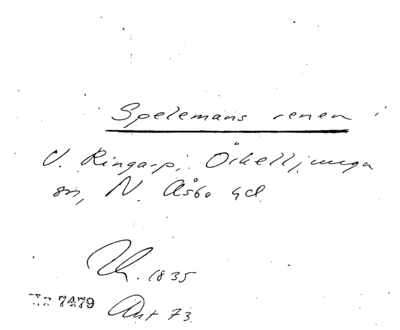 Spelemans renen i
V. Ringarp, Örkelljunga
sn, N. Åsbo hd
1835
Nr 7479 Ant 73